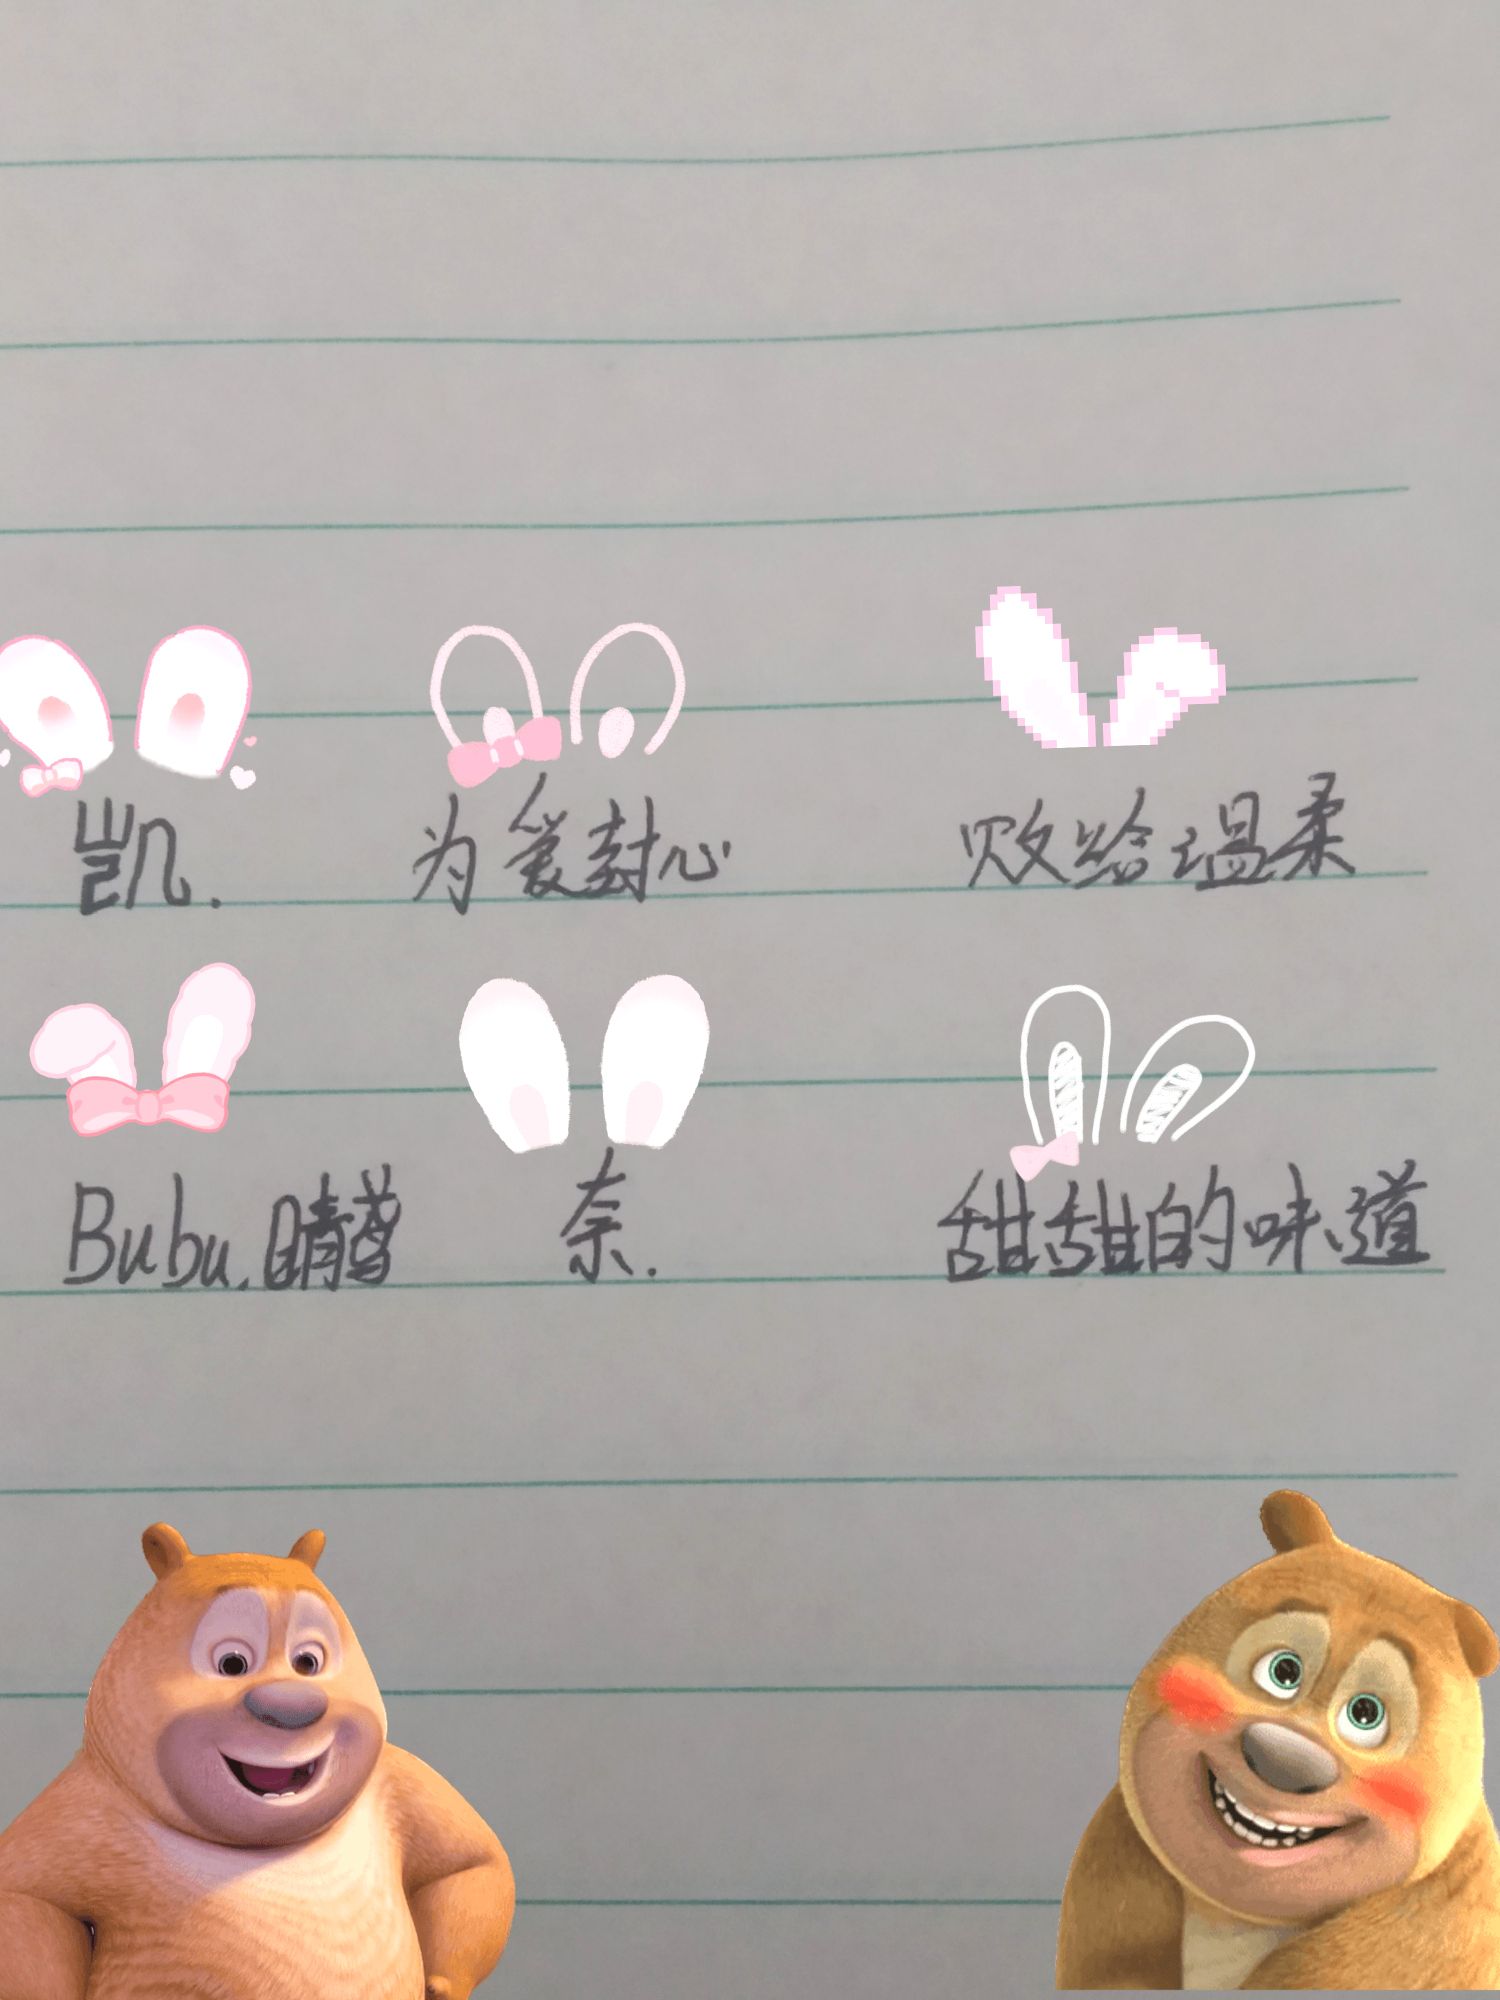 凯. 为爱封心 败给温柔
Bubu.晴 奈. 甜甜的味道